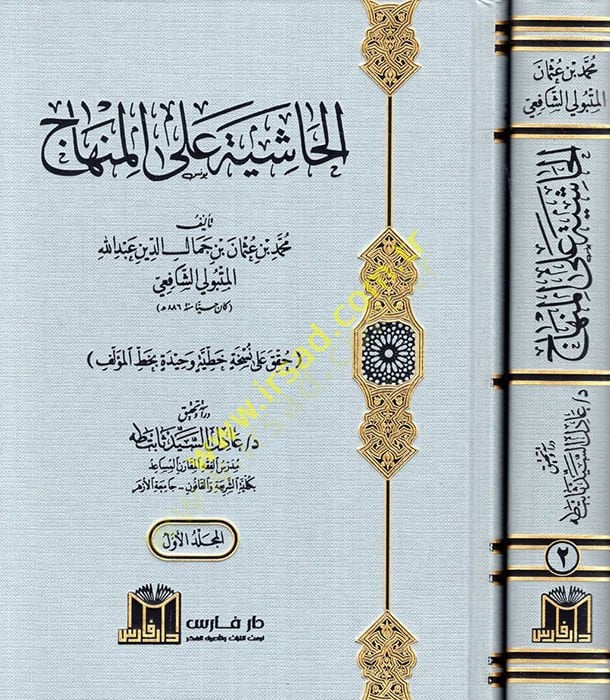 الحاشية على المنهاج
تأليف
محمد بن عثمان بن جمال الدين عبد الله
المتبولي الشافعي
(كان حيًّا سنة ٨٨٦ هـ)
(حُقِّق على نُسخةٍ خطيّةٍ وحيدةٍ بخط المؤلف)
دراسة وتحقيق
د/ عادل السيد ثابت طه
مدرس الفقه المقارن المساعد
بكلية الشريعة والقانون - جامعة الأزهر
المجلد الأول
دار فارس
دار فارس
محمد بن عثمان
المتبولي الشافعي
الحاشية على المنهاج
دراسة وتحقيق
د/ عادل السيد ثابت طه
٢
دار فارس
www.irsad.com.tr